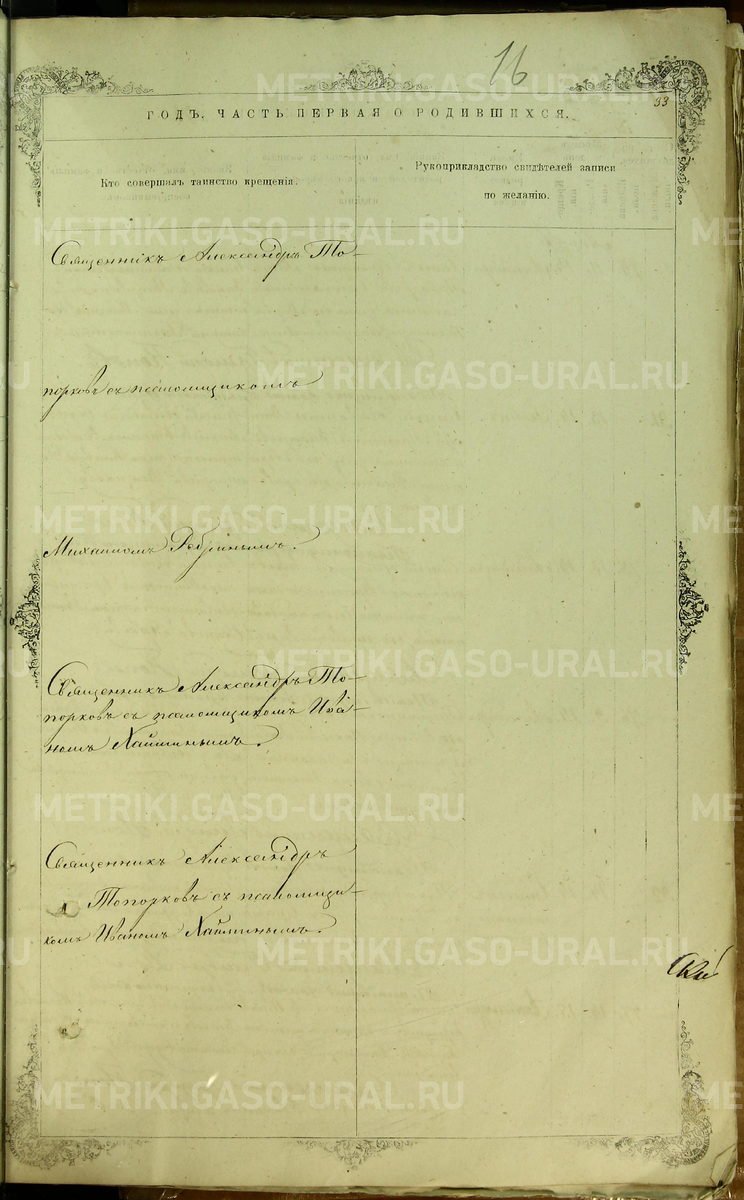 16
33
ГОДЪ, ЧАСТЬ ПЕРВАЯ О РОДИВШИХСЯ.
Кто совершалъ таинство крещенія.
Рукоприкладство свидѣтелей записи
по желанію.
Священникъ Александръ То-
порковъ съ псаломщикомъ
Михаиломъ
Священникъ Александръ То-
порковъ съ псаломщикомъ Ива-
номъ Хайминымъ.
Священникъ Александръ
Топорковъ съ псаломщи-
комъ Иваномъ Хайминымъ.
METRIKI.GASO-URAL.RU